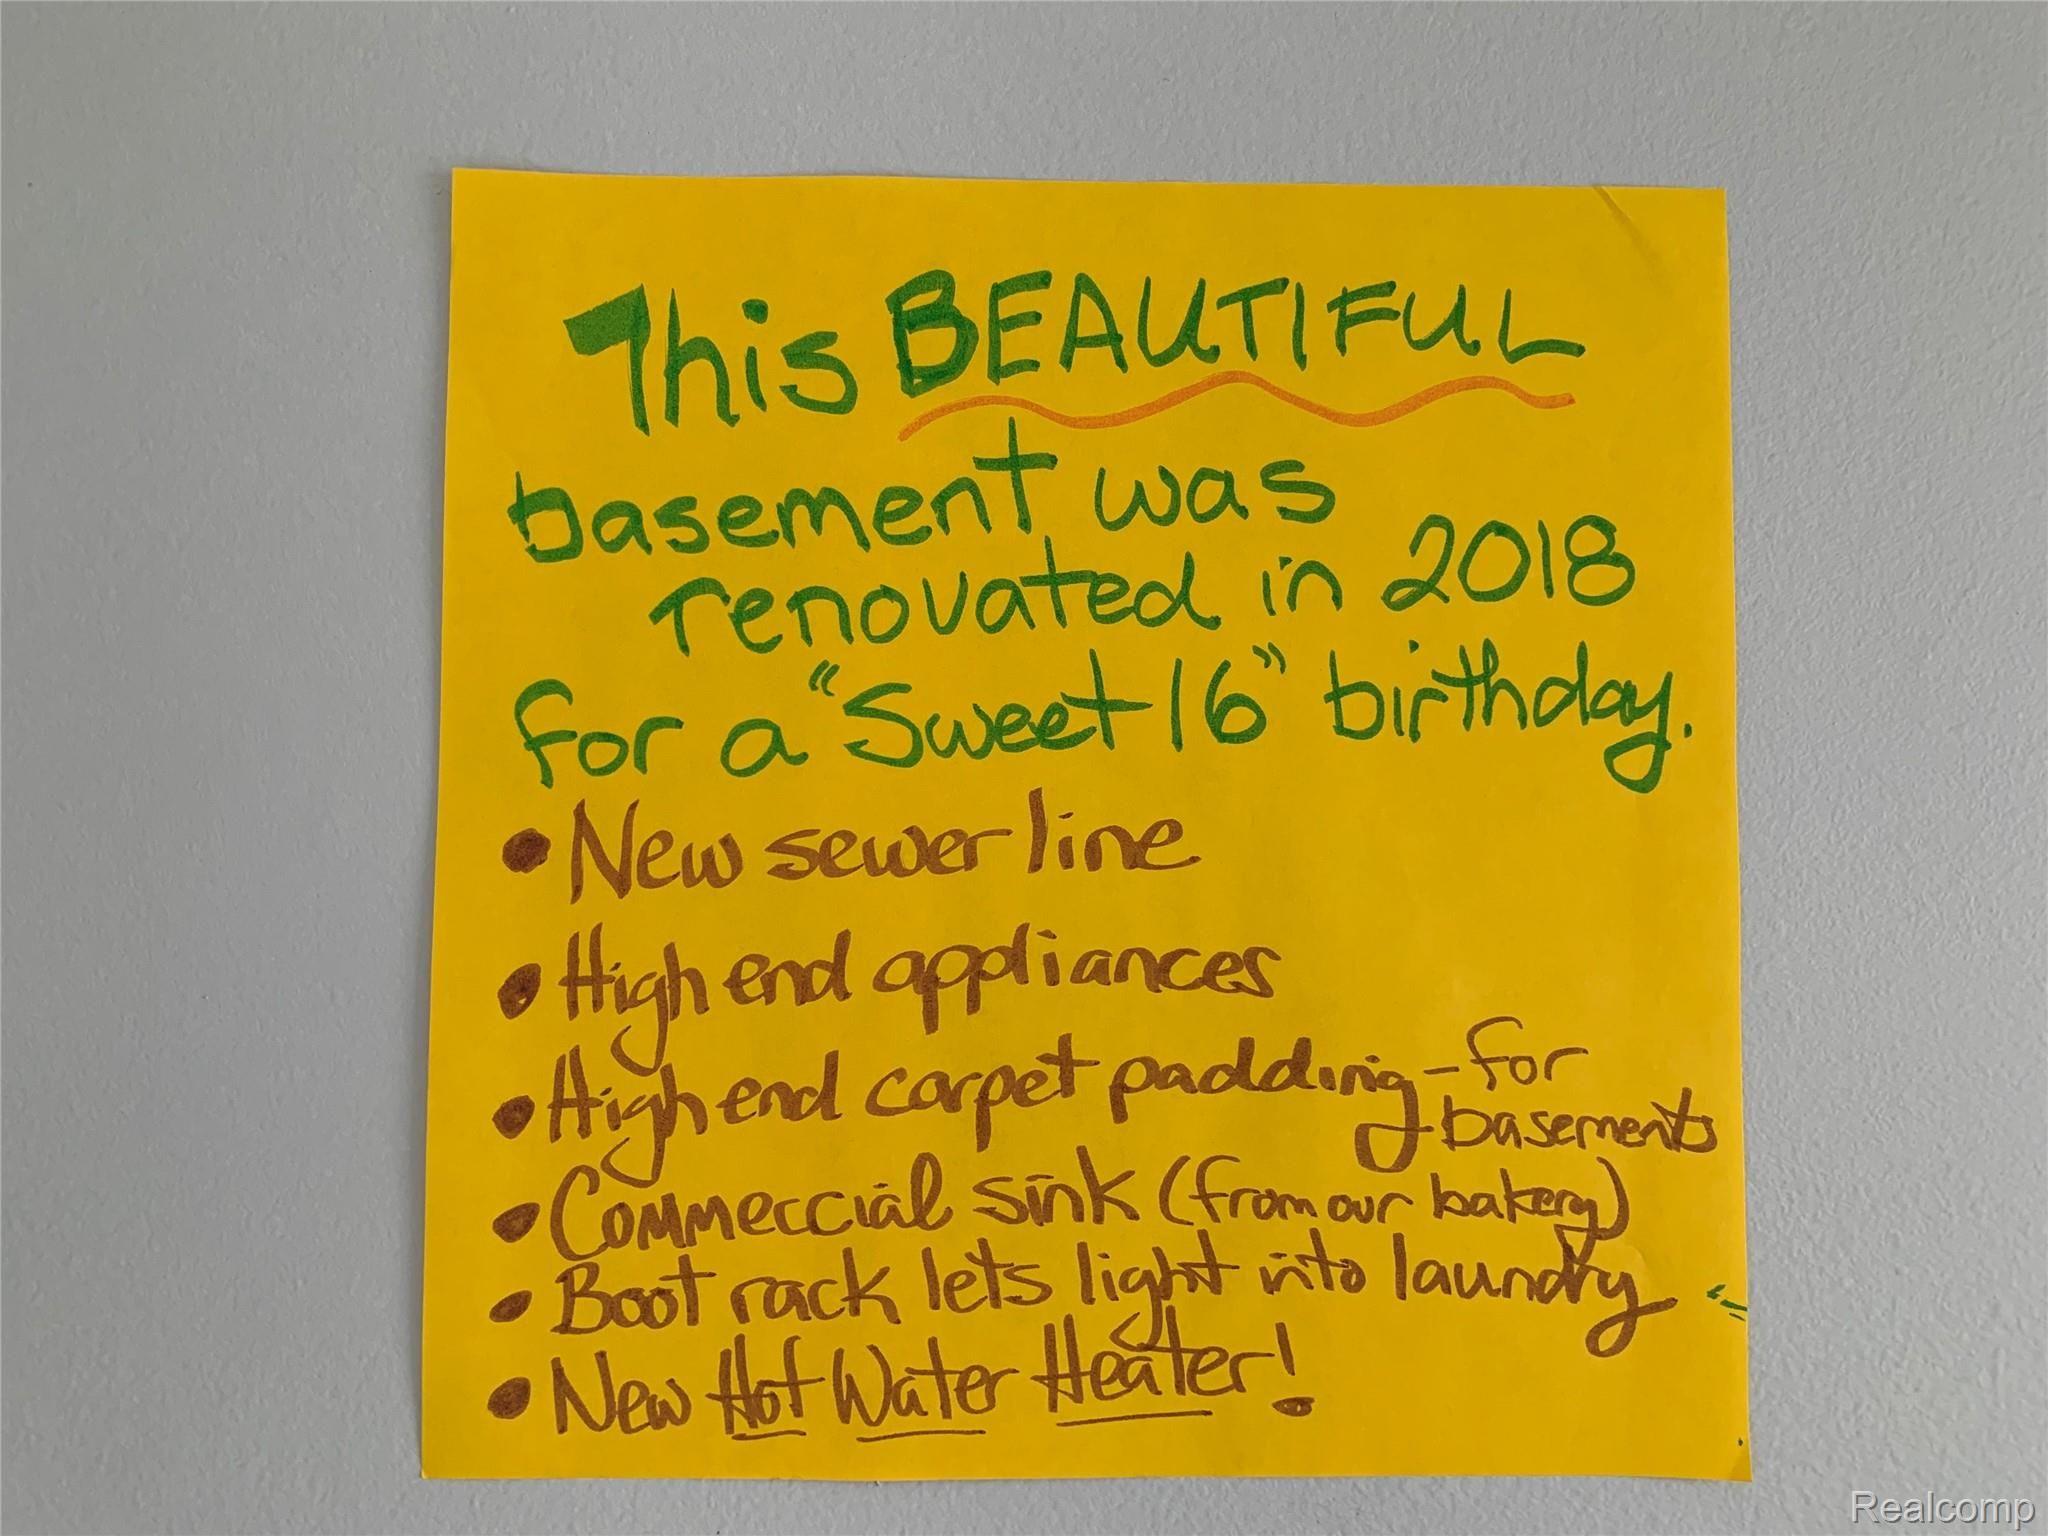 This BEAUTIFUL
basement was
renovated in 2018
for a "Sweet 16" birthday.
• New sewer line
• High end appliances
• High end carpet padding - for
basements
• Commerccial sink (from our bakery)
• Boot rack lets light into laundry
• New Hot Water Heater!
Realcomp